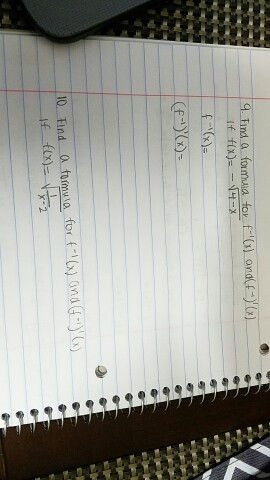 9. Find a formula for f⁻¹(x) and (f⁻¹)'(x)
If f(x) = -√4-x
f⁻¹(x) =
(f⁻¹)'(x) =
10. Find a formula for f⁻¹(x) and (f⁻¹)'(x)
If f(x) = √1/x-2